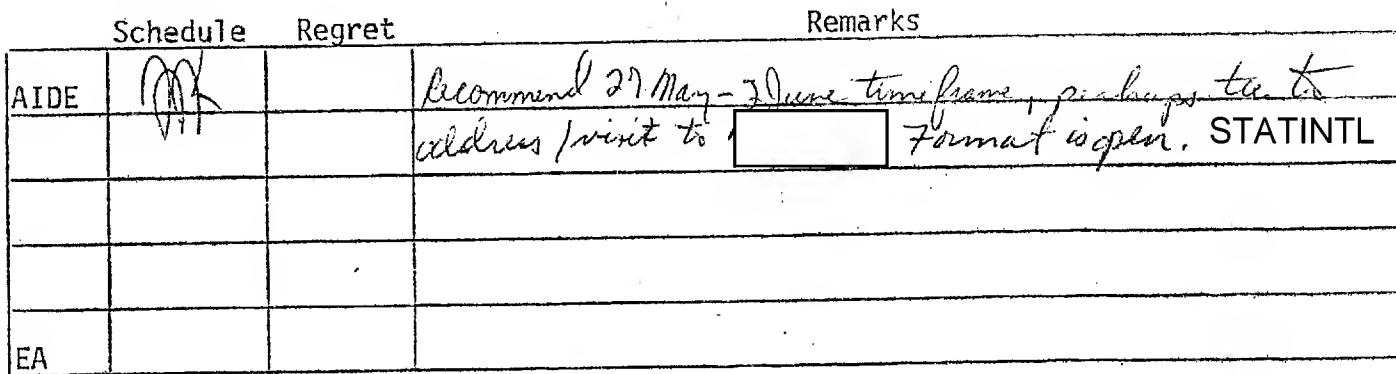 Schedule Regret Remarks
AIDE Recommend 27 May - 2 June timeframe, perhaps tie to
address / visit to Format is open. STATINTL
EA